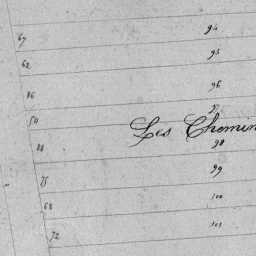 94
67
95
62
96
86
97
50
Les Chemin
98
99
75
100
68
101
72